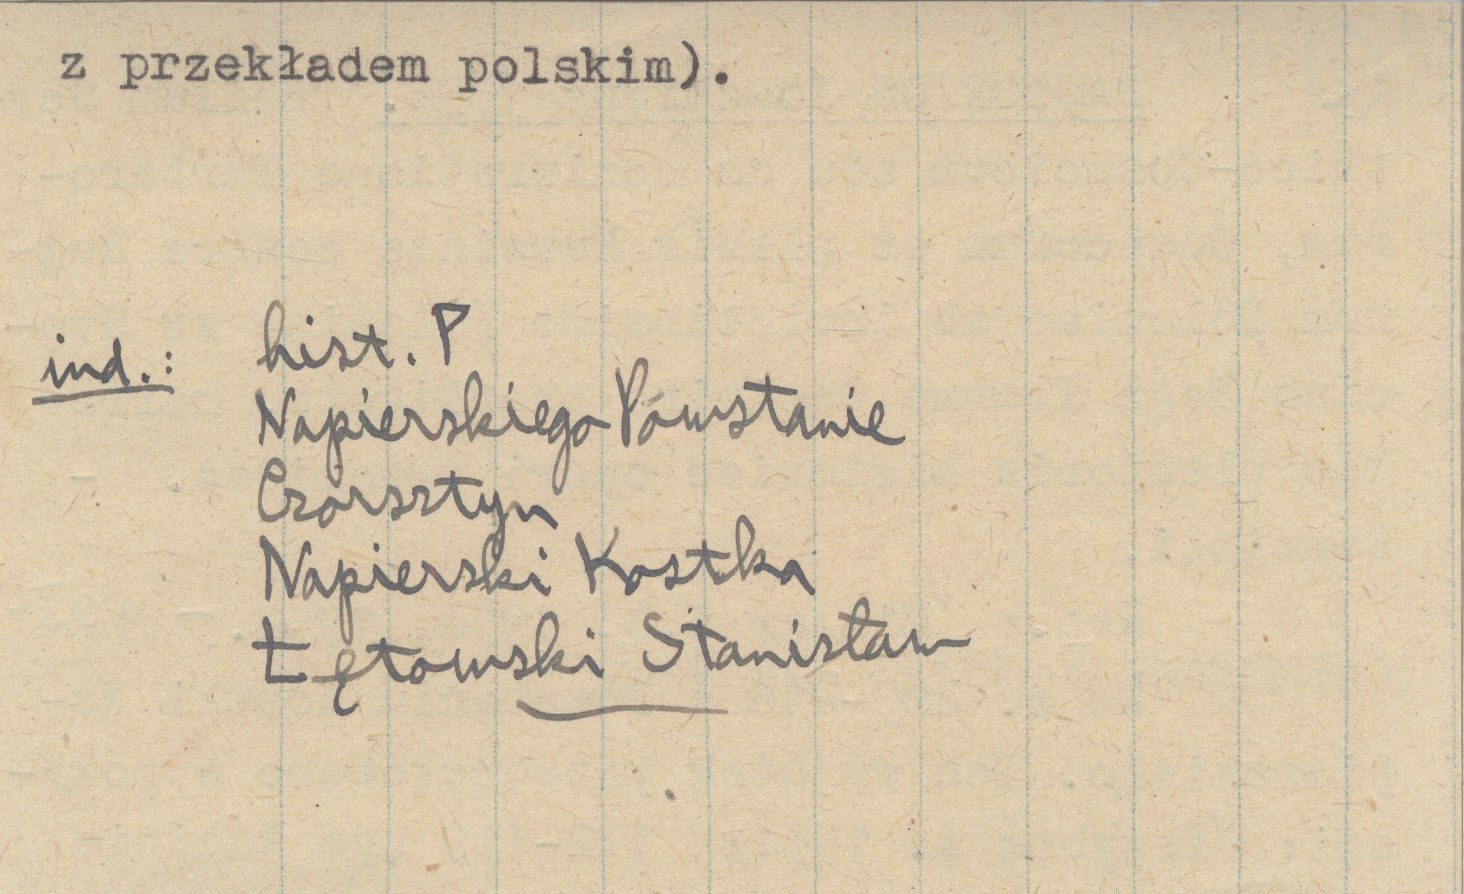 z przekładem polskim).
ind.: hist. P
Napierskiego Powstanie
Czorsztyn
Napierski Kostka
Łętowski Stanisław